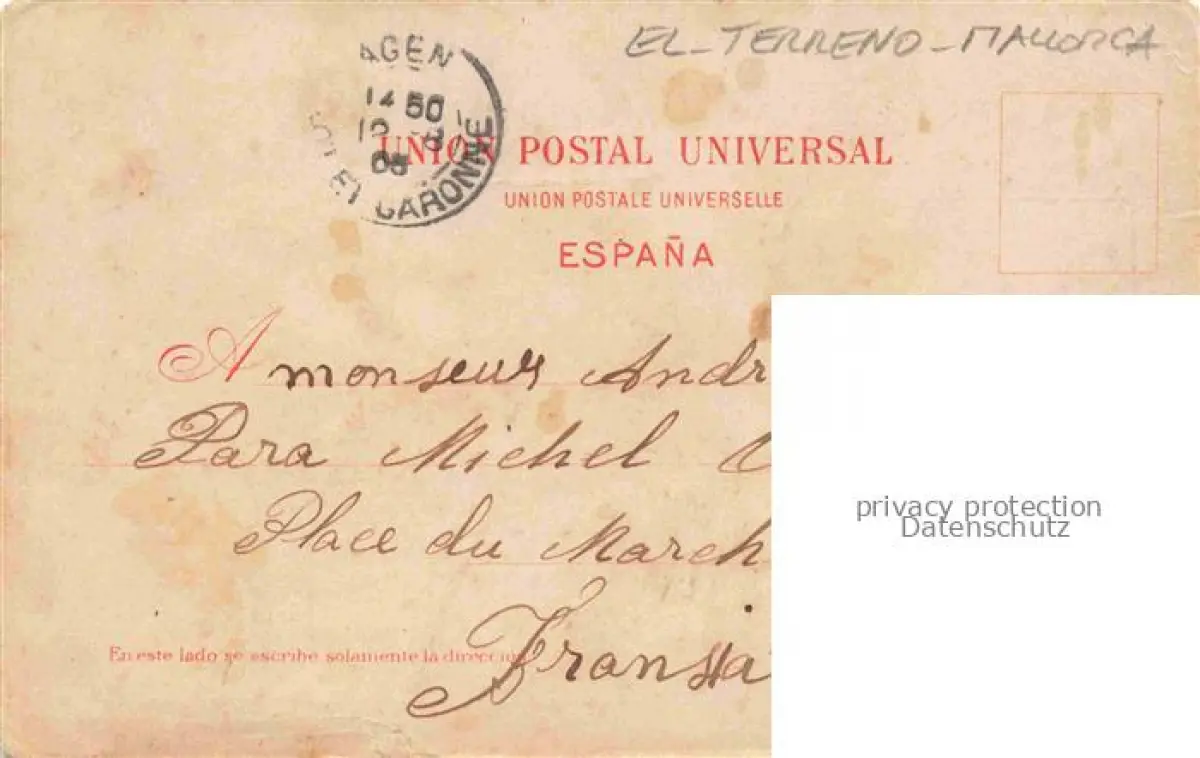 EL-TERRENO-MALLORCA
AGEN
14 50
05
LOT ET GARONNE
UNION POSTAL UNIVERSAL
UNION POSTALE UNIVERSELLE
ESPAÑA
A monseur Andr
Para Michel
Place du March
Franssia
En este lado se escribe solamente la direccion
privacy protection
Datenschutz